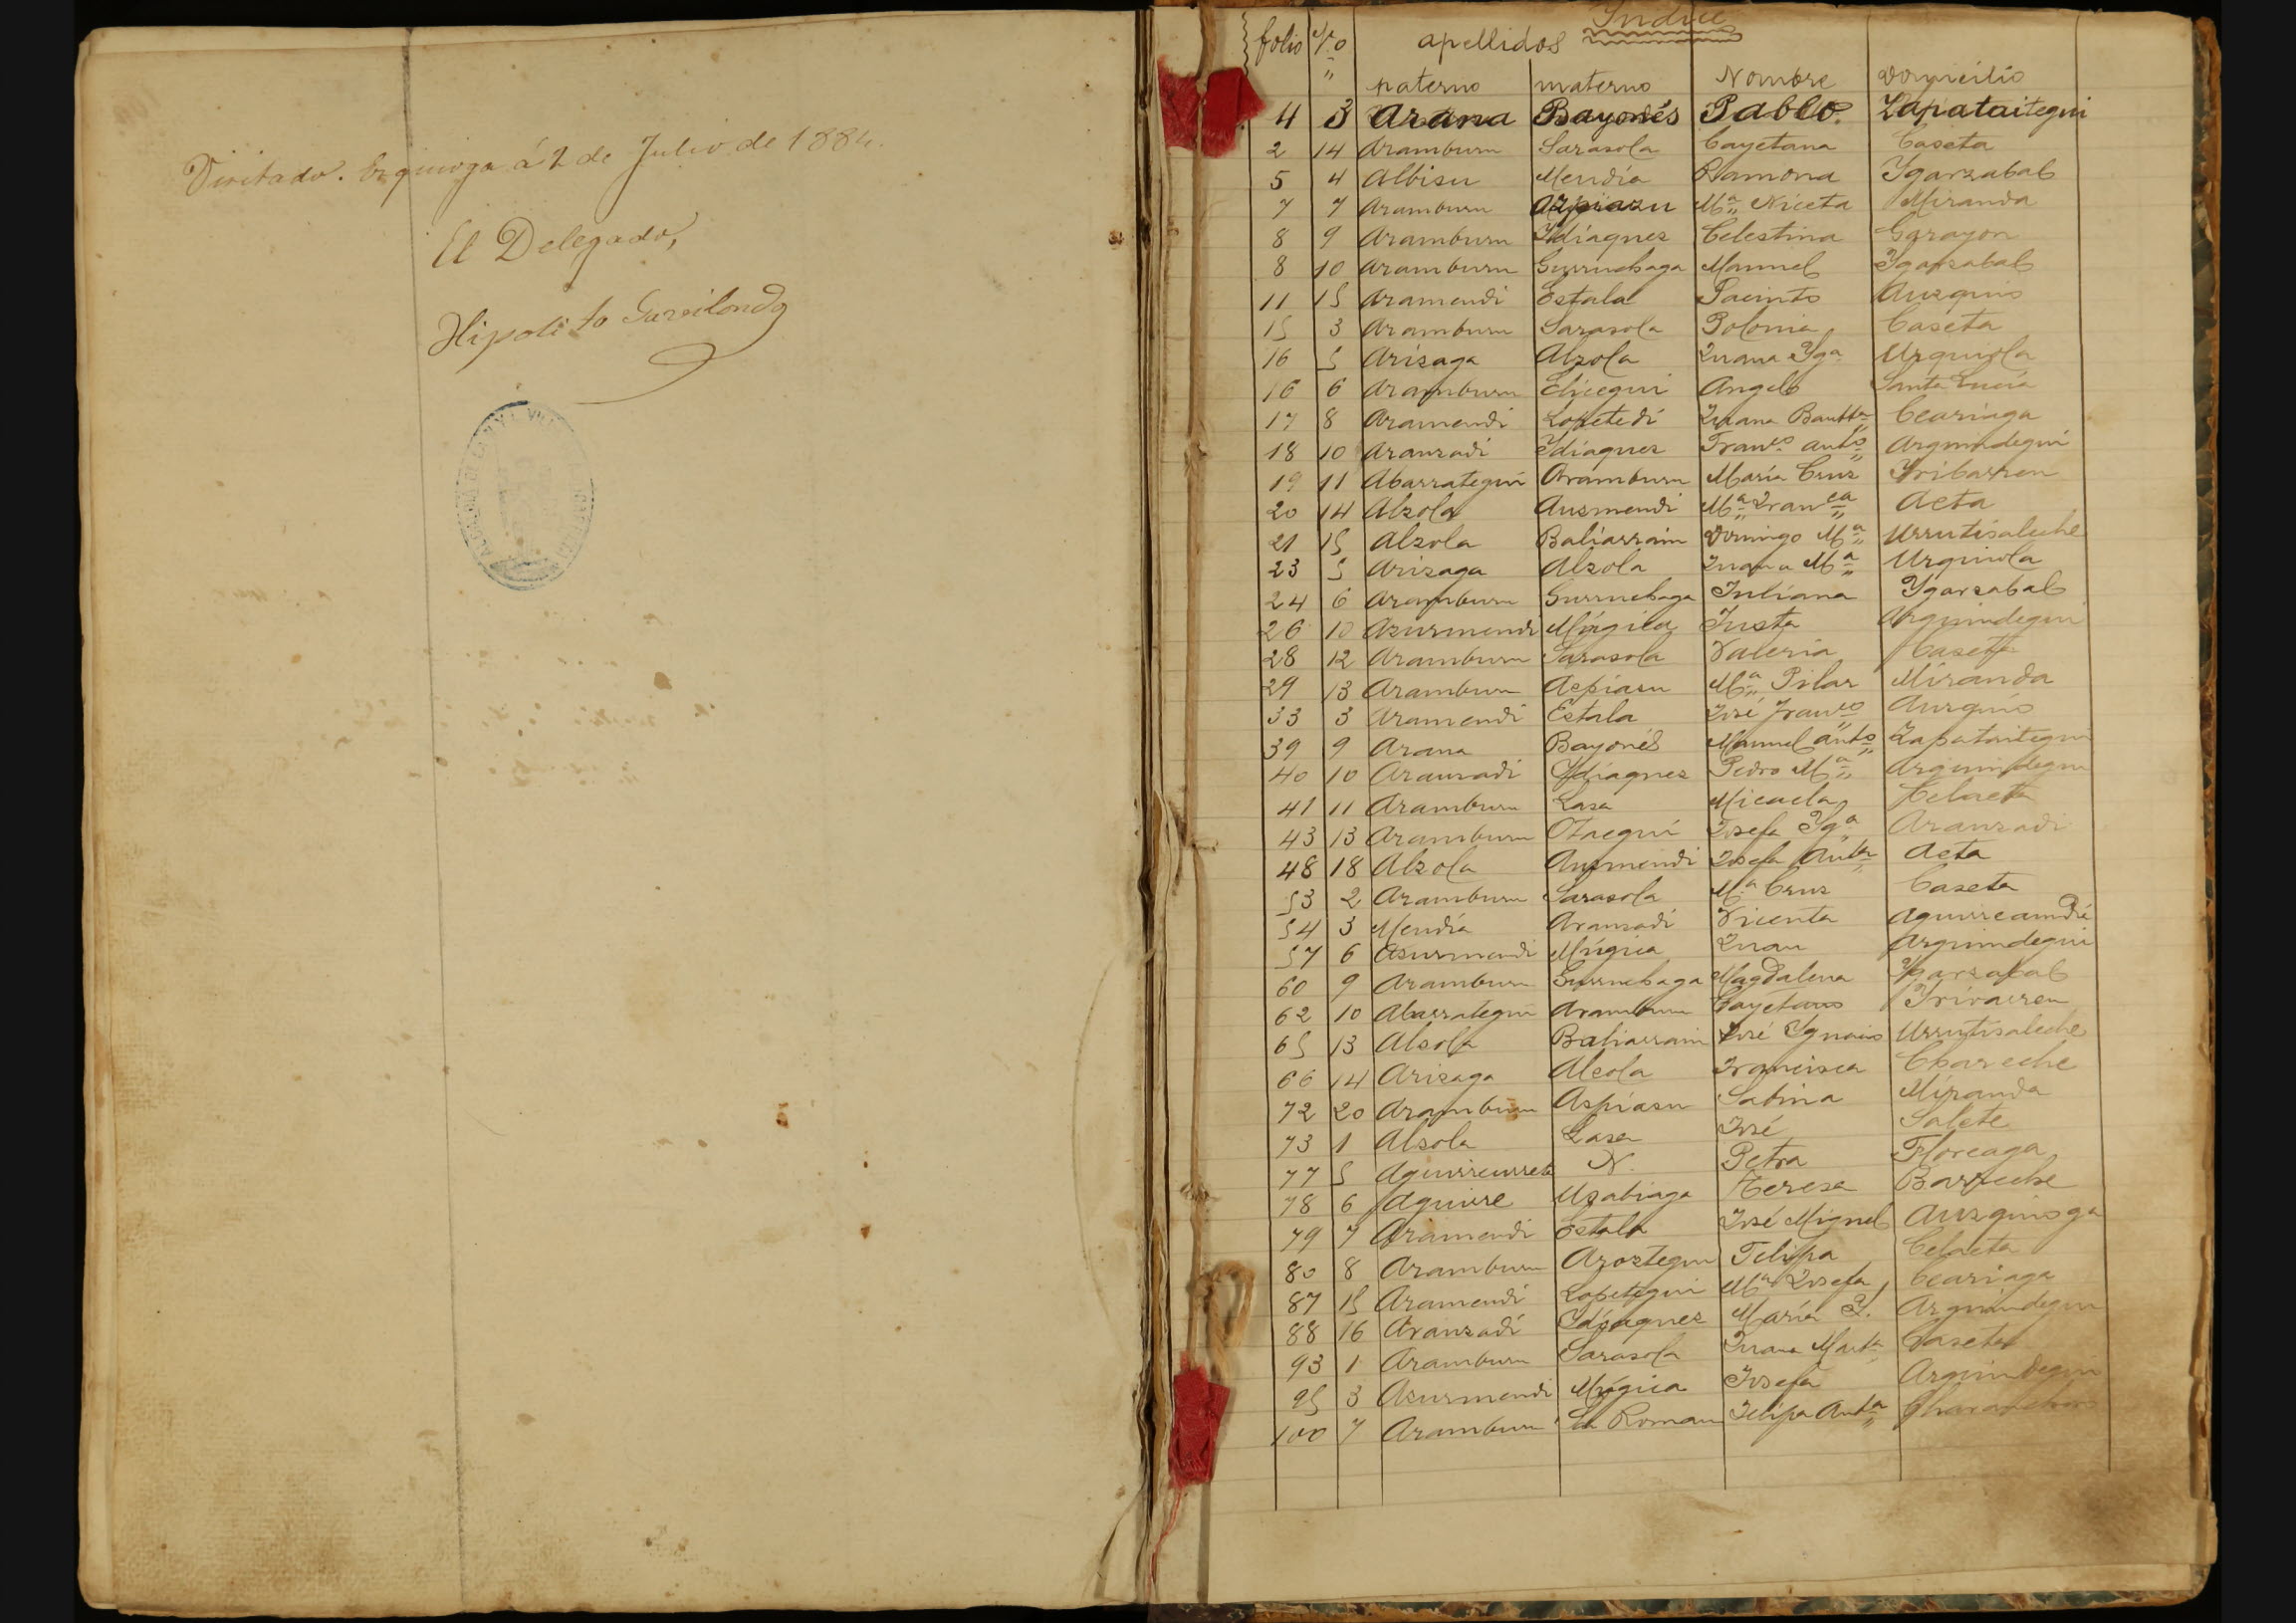 Visitado. Ezquioga á 2 de Julio de 1884.
El Delegado,
Hipolito Gurilondo
Indice
folio Nº apellidos
" paterno materno Nombre Domicilio
4 3 Arana Bayonés Pablo. Zapataitegui
2 14 Aramburu Sarasola Cayetana Caseta
5 4 Albisu Mendía Ramona Ygarzabal
7 7 Aramburu Azpiazu Mª Niceta Miranda
8 9 Aramburu Ydiaquez Celestina Garayon
8 10 Aramburu Gurruchaga Manuel Ygarzabal
11 15 Aramendi Estala Jacinto Auzquio
15 3 Aramburu Sarasola Polonia Caseta
16 5 Arizaga Alzola Juana Ygª Urquiola
16 6 Aramburu Elicegui Angel Santa Lucía
17 8 Aramendi Lopetedi Juana Bautta Ceariaga
18 10 Aranzadi Ydiaquez Franco anto Arguindegui
19 11 Abarrategui Aramburu María Cruz Yribarren
20 14 Alzola Auzmendi Mª Franca Aeta
21 15 Alzola Baliarrain Domingo Mª Urrutisaleche
23 5 Arizaga Alzola Juana Mª Urquiola
24 6 Aramburu Gurruchaga Juliana Ygarzabal
26 10 Azurmendi Múgica Justa Arguindegui
28 12 Aramburu Sarasola Valeria Caseta
29 13 Aramburu Aspiasu Mª Pilar Miranda
33 3 Aramendi Estala José Franco Auzquio
39 9 Arana Bayonés Manuel anto Zapataitegui
40 10 Aranzadi Ydiaquez Pedro Mª Arguindegui
41 11 Aramburu Lasa Micaela Celaeta
43 13 Aramburu Otaegui Josefa Ygª Aranzadi
48 18 Alzola Auzmendi Josefa Anta Aeta
53 2 Aramburu Sarasola Mª Cruz Caseta
54 3 Mendía Aranzadi Vicenta Aguirreaundia
57 6 Asurmendi Múgica Juan Arguindegui
60 9 Aramburu Gurruchaga Magdalena Ygarzabal
62 10 Abarrategui Aramburu Cayetano Yrivarren
65 13 Alzola Baliarrain José Ygnacio Urrutisaleche
66 14 Arizaga Alcola Francisca Chareche
72 20 Aramburu Aspiasu Sabina Miranda
73 1 Alzola Lasa José Salete
77 5 Aguirreurreta N. Petra Floreaga
78 6 Aguirre Uzabiaga Teresa Barreche
79 7 Aramendi Estala José Miguel Auzquioga
80 8 Aramburu Aroztegui Felipa Celaeta
87 15 Aramendi Lopetegui Mª Josefa Ceariaga
88 16 Aranzadi Ydiaquez María J. Arguindegui
93 1 Aramburu Sarasola Juana Marta Caseta
95 3 Azurmendi Múgica Josefa Arguindegui
100 7 Aramburu Sn Roman Felipa Anta